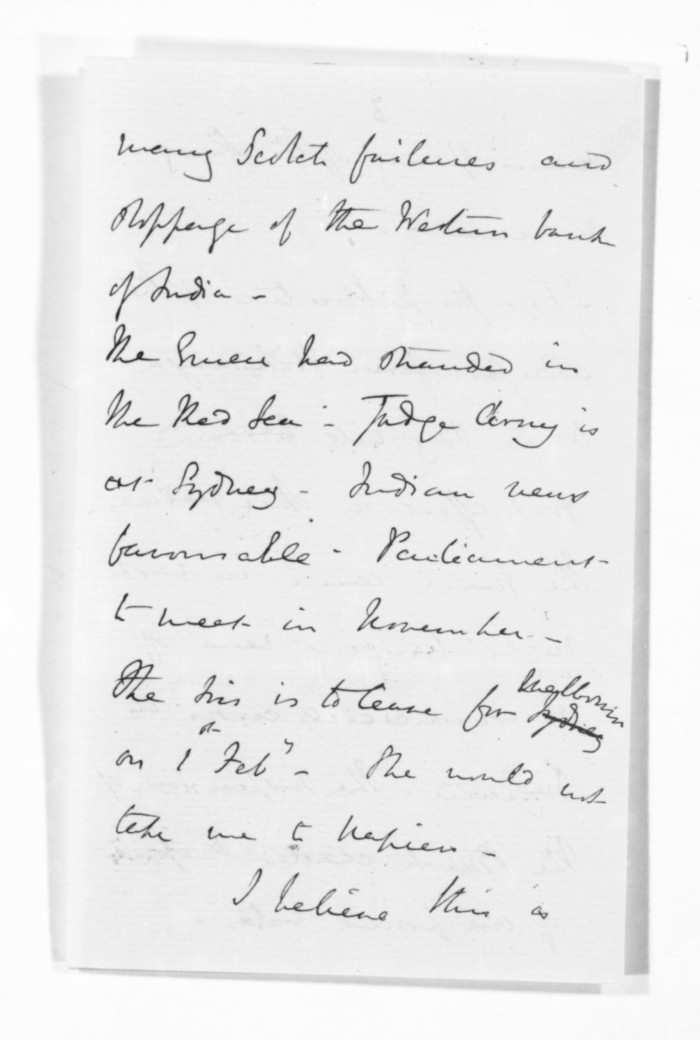 many Scotch failures and
stoppage of the Western bank
of India -
the Emeu had stranded in
the Red Sea - Judge Chewy is
at Sydney - Indian news
favourable - Parliament
to meet in November -
Melbourne
The Iris is to leave for Sydney
on 1st Feby - She would not
take me to Napier -
I believe this is